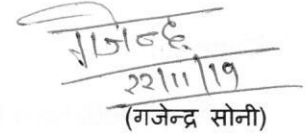 गजेन्द्र
22/11/19
(गजेन्द्र सोनी)